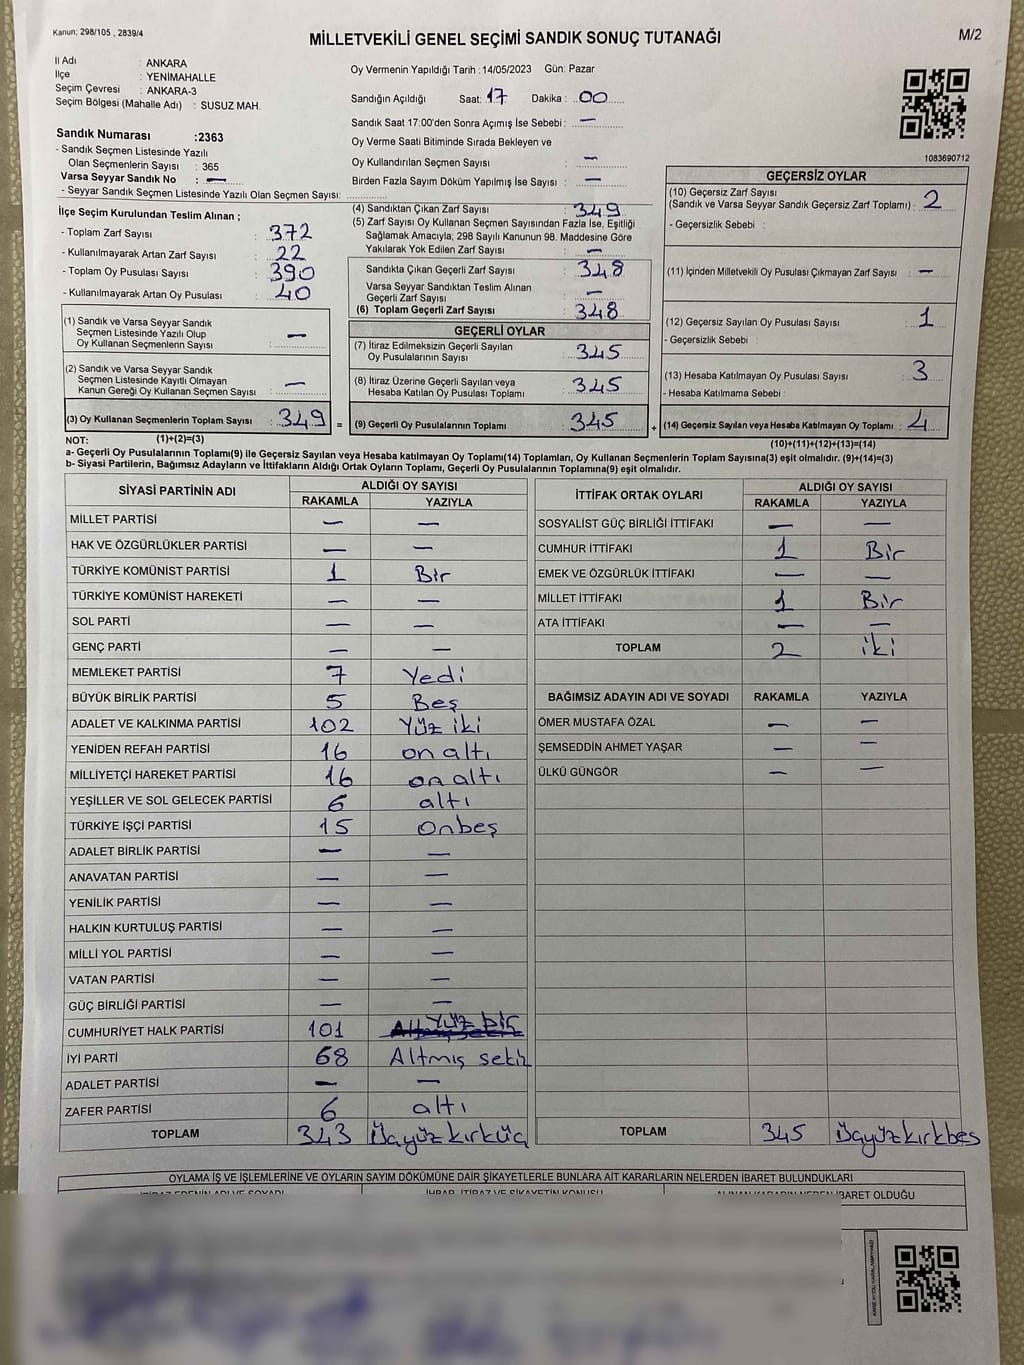 Kanun; 298/105 , 2839/4
MİLLETVEKİLİ GENEL SEÇİMİ SANDIK SONUÇ TUTANAĞI
M/2
İl Adı : ANKARA
İlçe : YENİMAHALLE
Seçim Çevresi : ANKARA-3
Seçim Bölgesi (Mahalle Adı) : SUSUZ MAH.
Oy Vermenin Yapıldığı Tarih :14/05/2023 Gün: Pazar
Sandığın Açıldığı Saat: 17 Dakika : 00
Sandık Saat 17:00'den Sonra Açımış İse Sebebi : —
Oy Verme Saati Bitiminde Sırada Bekleyen ve
Oy Kullandırılan Seçmen Sayısı : —
Birden Fazla Sayım Döküm Yapılmış İse Sayısı : —
1083690712
Sandık Numarası :2363
- Sandık Seçmen Listesinde Yazılı
Olan Seçmenlerin Sayısı : 365
Varsa Seyyar Sandık No : —
- Seyyar Sandık Seçmen Listesinde Yazılı Olan Seçmen Sayısı:
İlçe Seçim Kurulundan Teslim Alınan ;
- Toplam Zarf Sayısı : 372
- Kullanılmayarak Artan Zarf Sayısı : 22
- Toplam Oy Pusulası Sayısı : 390
- Kullanılmayarak Artan Oy Pusulası : 40
(1) Sandık ve Varsa Seyyar Sandık
Seçmen Listesinde Yazılı Olup
Oy Kullanan Seçmenlerin Sayısı : —
(2) Sandık ve Varsa Seyyar Sandık
Seçmen Listesinde Kayıtlı Olmayan
Kanun Gereği Oy Kullanan Seçmen Sayısı : —
(3) Oy Kullanan Seçmenlerin Toplam Sayısı : 349 =
(4) Sandıktan Çıkan Zarf Sayısı : 349
(5) Zarf Sayısı Oy Kullanan Seçmen Sayısından Fazla İse, Eşitliği
Sağlamak Amacıyla; 298 Sayılı Kanunun 98. Maddesine Göre
Yakılarak Yok Edilen Zarf Sayısı : —
Sandıkta Çıkan Geçerli Zarf Sayısı : 348
Varsa Seyyar Sandıktan Teslim Alınan
Geçerli Zarf Sayısı : —
(6) Toplam Geçerli Zarf Sayısı : 348
GEÇERLİ OYLAR
(7) İtiraz Edilmeksizin Geçerli Sayılan
Oy Pusulalarının Sayısı : 345
(8) İtiraz Üzerine Geçerli Sayılan veya
Hesaba Katılan Oy Pusulaları Toplamı : 345
(9) Geçerli Oy Pusulalarının Toplamı : 345 +
GEÇERSİZ OYLAR
(10) Geçersiz Zarf Sayısı
(Sandık ve Varsa Seyyar Sandık Geçersiz Zarf Toplamı) : 2
- Geçersizlik Sebebi :
(11) İçinden Milletvekili Oy Pusulası Çıkmayan Zarf Sayısı : —
(12) Geçersiz Sayılan Oy Pusulası Sayısı : 1
- Geçersizlik Sebebi :
(13) Hesaba Katılmayan Oy Pusulası Sayısı : 3
- Hesaba Katılmama Sebebi :
(14) Geçersiz Sayılan veya Hesaba Katılmayan Oy Toplamı : 4
NOT: (1)+(2)=(3) (10)+(11)+(12)+(13)=(14)
a- Geçerli Oy Pusulalarının Toplamı(9) ile Geçersiz Sayılan veya Hesaba katılmayan Oy Toplamı(14) Toplamları, Oy Kullanan Seçmenlerin Toplam Sayısına(3) eşit olmalıdır. (9)+(14)=(3)
b- Siyasi Partilerin, Bağımsız Adayların ve İttifakların Aldığı Ortak Oyların Toplamı, Geçerli Oy Pusulalarının Toplamına(9) eşit olmalıdır.
SİYASİ PARTİNİN ADI ALDIĞI OY SAYISI
RAKAMLA YAZIYLA
MİLLET PARTİSİ — —
HAK VE ÖZGÜRLÜKLER PARTİSİ — —
TÜRKİYE KOMÜNİST PARTİSİ 1 Bir
TÜRKİYE KOMÜNİST HAREKETİ — —
SOL PARTİ — —
GENÇ PARTİ — —
MEMLEKET PARTİSİ 7 Yedi
BÜYÜK BİRLİK PARTİSİ 5 Beş
ADALET VE KALKINMA PARTİSİ 102 Yüz iki
YENİDEN REFAH PARTİSİ 16 on altı
MİLLİYETÇİ HAREKET PARTİSİ 16 on altı
YEŞİLLER VE SOL GELECEK PARTİSİ 6 altı
TÜRKİYE İŞÇİ PARTİSİ 15 Onbeş
ADALET BİRLİK PARTİSİ — —
ANAVATAN PARTİSİ — —
YENİLİK PARTİSİ — —
HALKIN KURTULUŞ PARTİSİ — —
MİLLİ YOL PARTİSİ — —
VATAN PARTİSİ — —
GÜÇ BİRLİĞİ PARTİSİ — —
CUMHURİYET HALK PARTİSİ 101 Yüz bir
İYİ PARTİ 68 Altmış sekiz
ADALET PARTİSİ — —
ZAFER PARTİSİ 6 altı
TOPLAM 343 Üçyüzkırküç
İTTİFAK ORTAK OYLARI ALDIĞI OY SAYISI
RAKAMLA YAZIYLA
SOSYALİST GÜÇ BİRLİĞİ İTTİFAKI — —
CUMHUR İTTİFAKI 1 Bir
EMEK VE ÖZGÜRLÜK İTTİFAKI — —
MİLLET İTTİFAKI 1 Bir
ATA İTTİFAKI — —
TOPLAM 2 iki
BAĞIMSIZ ADAYIN ADI VE SOYADI RAKAMLA YAZIYLA
ÖMER MUSTAFA ÖZAL — —
ŞEMSEDDİN AHMET YAŞAR — —
ÜLKÜ GÜNGÖR — —
TOPLAM 345 Üçyüzkırkbeş
OYLAMA İŞ VE İŞLEMLERİNE VE OYLARIN SAYIM DÖKÜMÜNE DAİR ŞİKAYETLERLE BUNLARA AİT KARARLARIN NELERDEN İBARET BULUNDUKLARI
İTİRAZ EDENİN ADI VE SOYADI İHBAR, İTİRAZ VE ŞİKAYETİN KONUSU ALINAN KARARIN NEDEN İBARET OLDUĞU